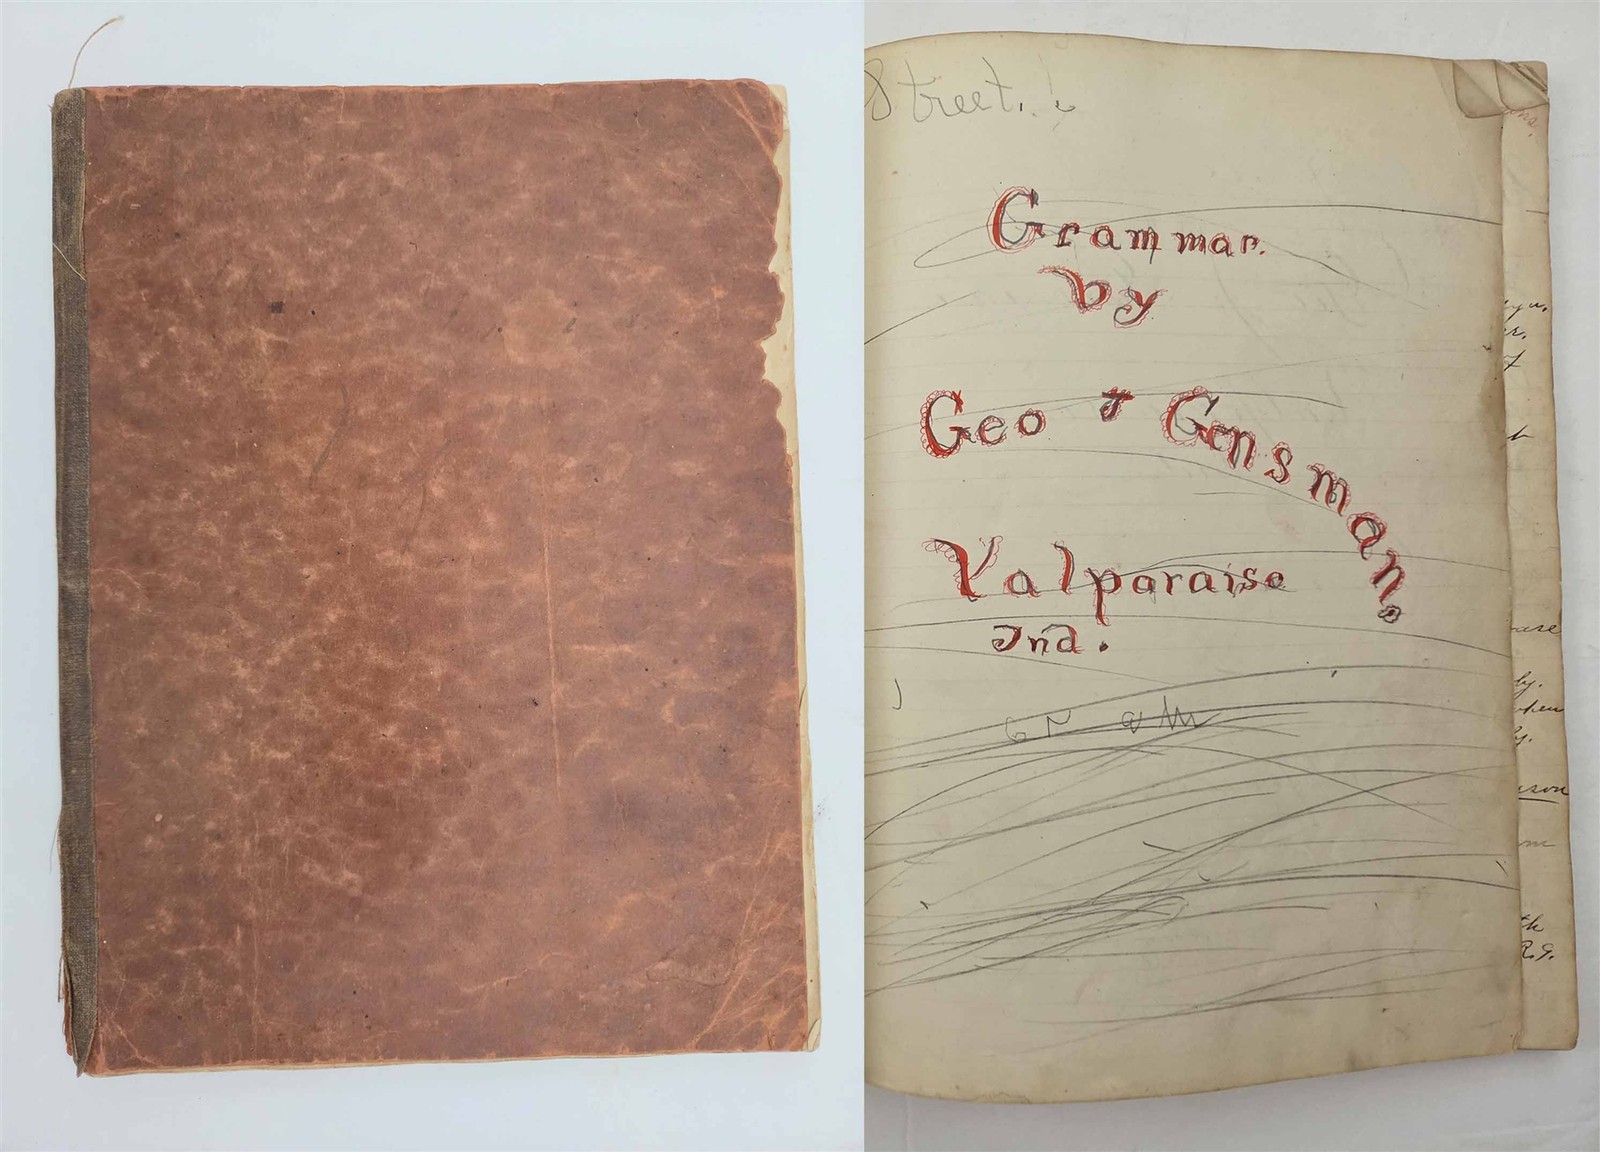 Street.
Grammar.
by
Geo J Gensman.
Valparaiso
Ind.
Gr am